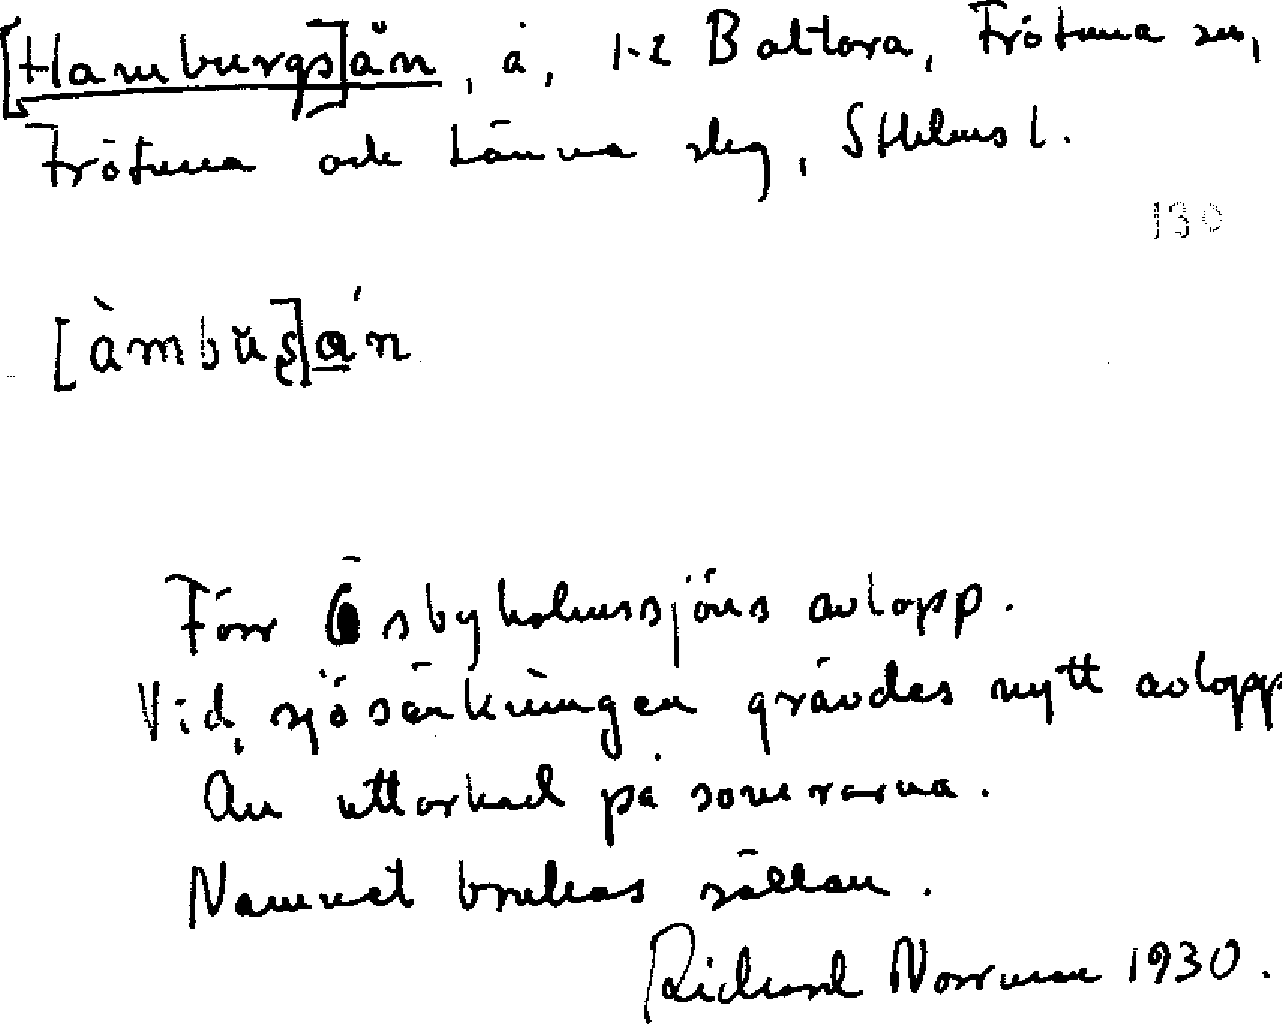 [Hamburgs]ån, å, 1-2 Baltora, Frötuna sn,
Frötuna och Länna skg, Sthlms l.
130
[àmbŭʂ]a̲ʹn
Förr Ösbyholmssjöns avlopp.
Vid sjösänkningen grävdes nytt avlopp
Ån uttorkad på somrarna.
Namnet brukas sällan.
Rickard Norrman 1930.